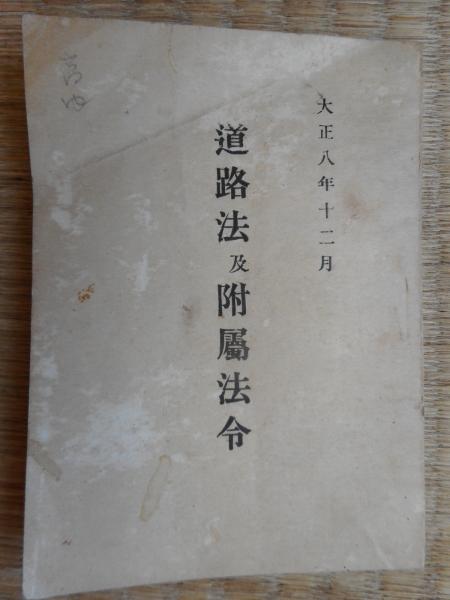 大正八年十二月
道路法及附屬法令